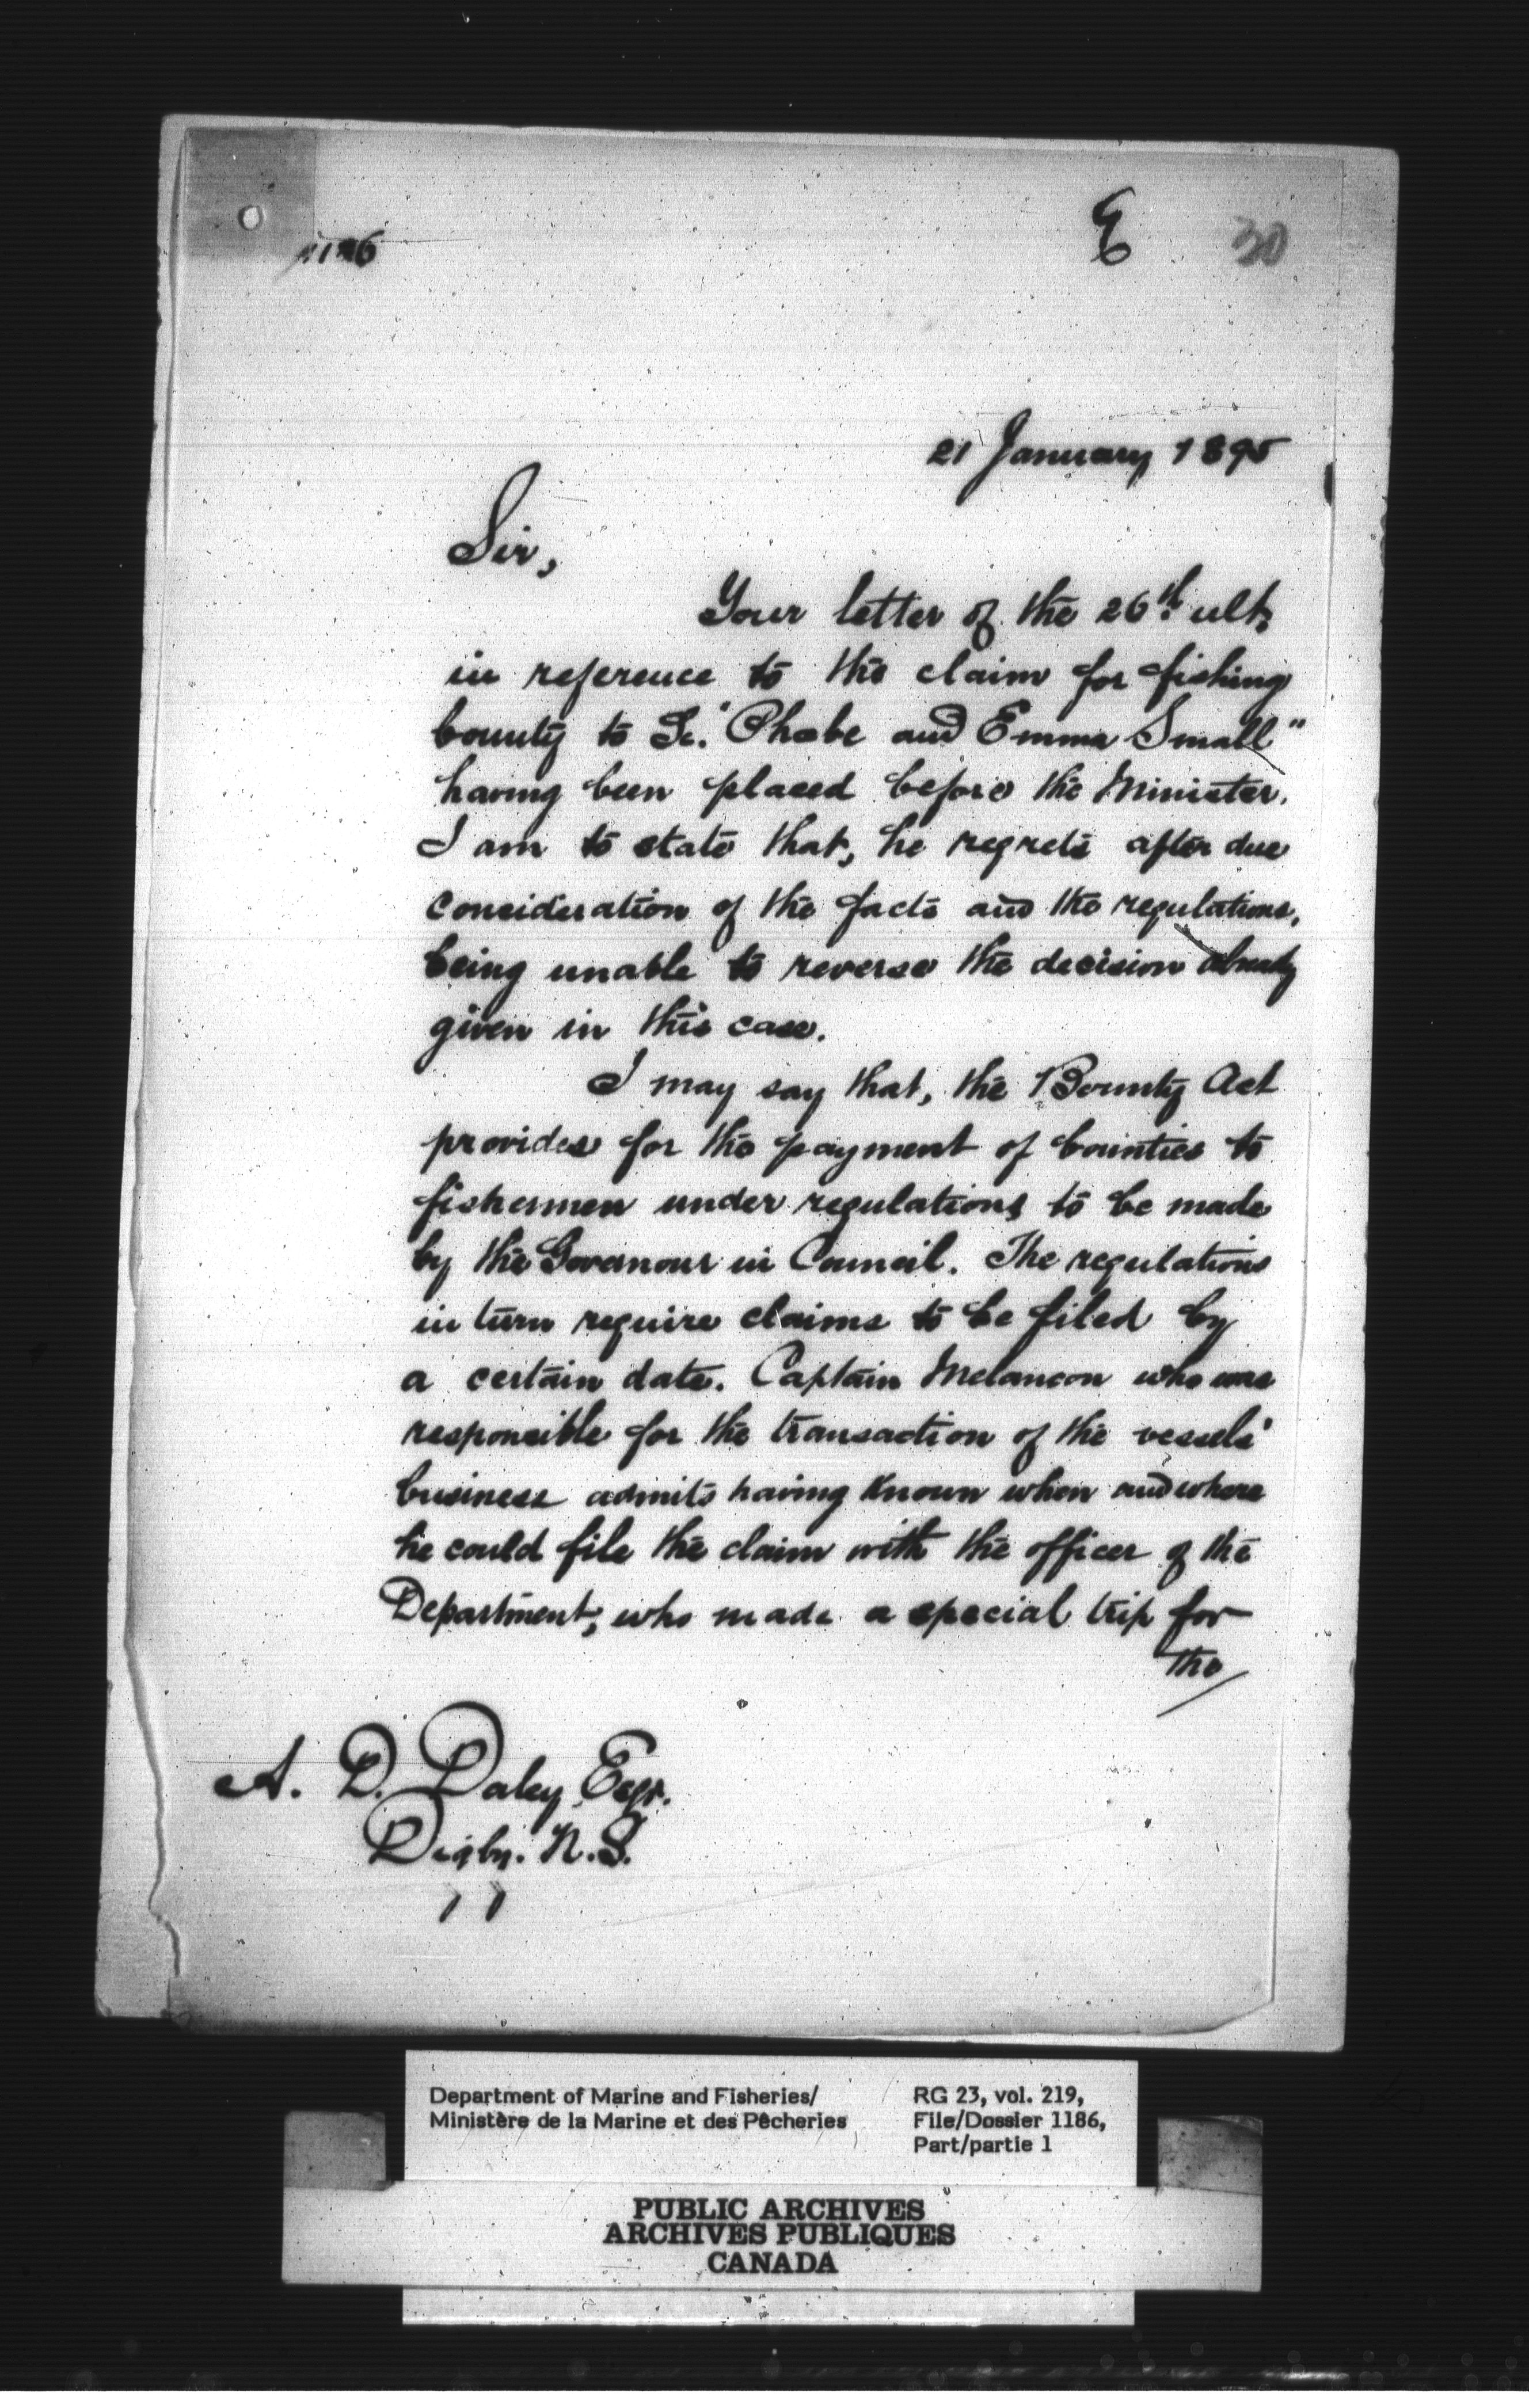 1186
E 30
21 January 1895
Sir,
Your letter of the 26th ult.
in reference to the claim for fishing
bounty to Sc. "Phoebe and Emma Small"
having been placed before the Minister.
I am to state that, he regrets after due
consideration of the facts and the regulations,
being unable to reverse the decision already
given in this case.
I may say that, the Bounty Act
provides for the payment of bounties to
fishermen under regulations to be made
by the Governour in Council. The regulations
in turn require claims to be filed by
a certain date. Captain Melancon who was
responsible for the transaction of the vessels'
business admits having known when and where
he could file the claim with the officer of the
Department, who made a special trip for
the
A. D. Daley Esqr.
Digby. N.S.
Department of Marine and Fisheries/
Ministère de la Marine et des Pêcheries
RG 23, vol. 219,
File/Dossier 1186,
Part/partie 1
PUBLIC ARCHIVES
ARCHIVES PUBLIQUES
CANADA